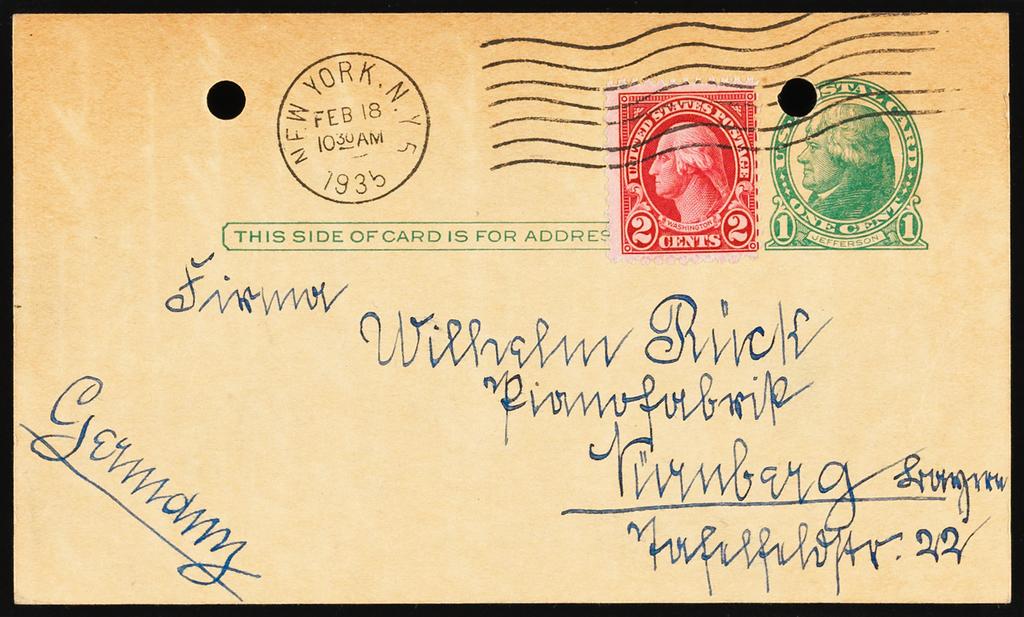 NEW YORK, N.Y.
5
FEB 18
10 30 AM
1935
UNITED STATES POSTAGE
WASHINGTON
2 CENTS 2
U.S. POSTAL CARD
ONE CENT
1 JEFFERSON 1
THIS SIDE OF CARD IS FOR ADDRES
Firma
Wilhelm Rück
Pianofabrik
Nürnberg Bayern
Tafelfeldstr. 22
Germany